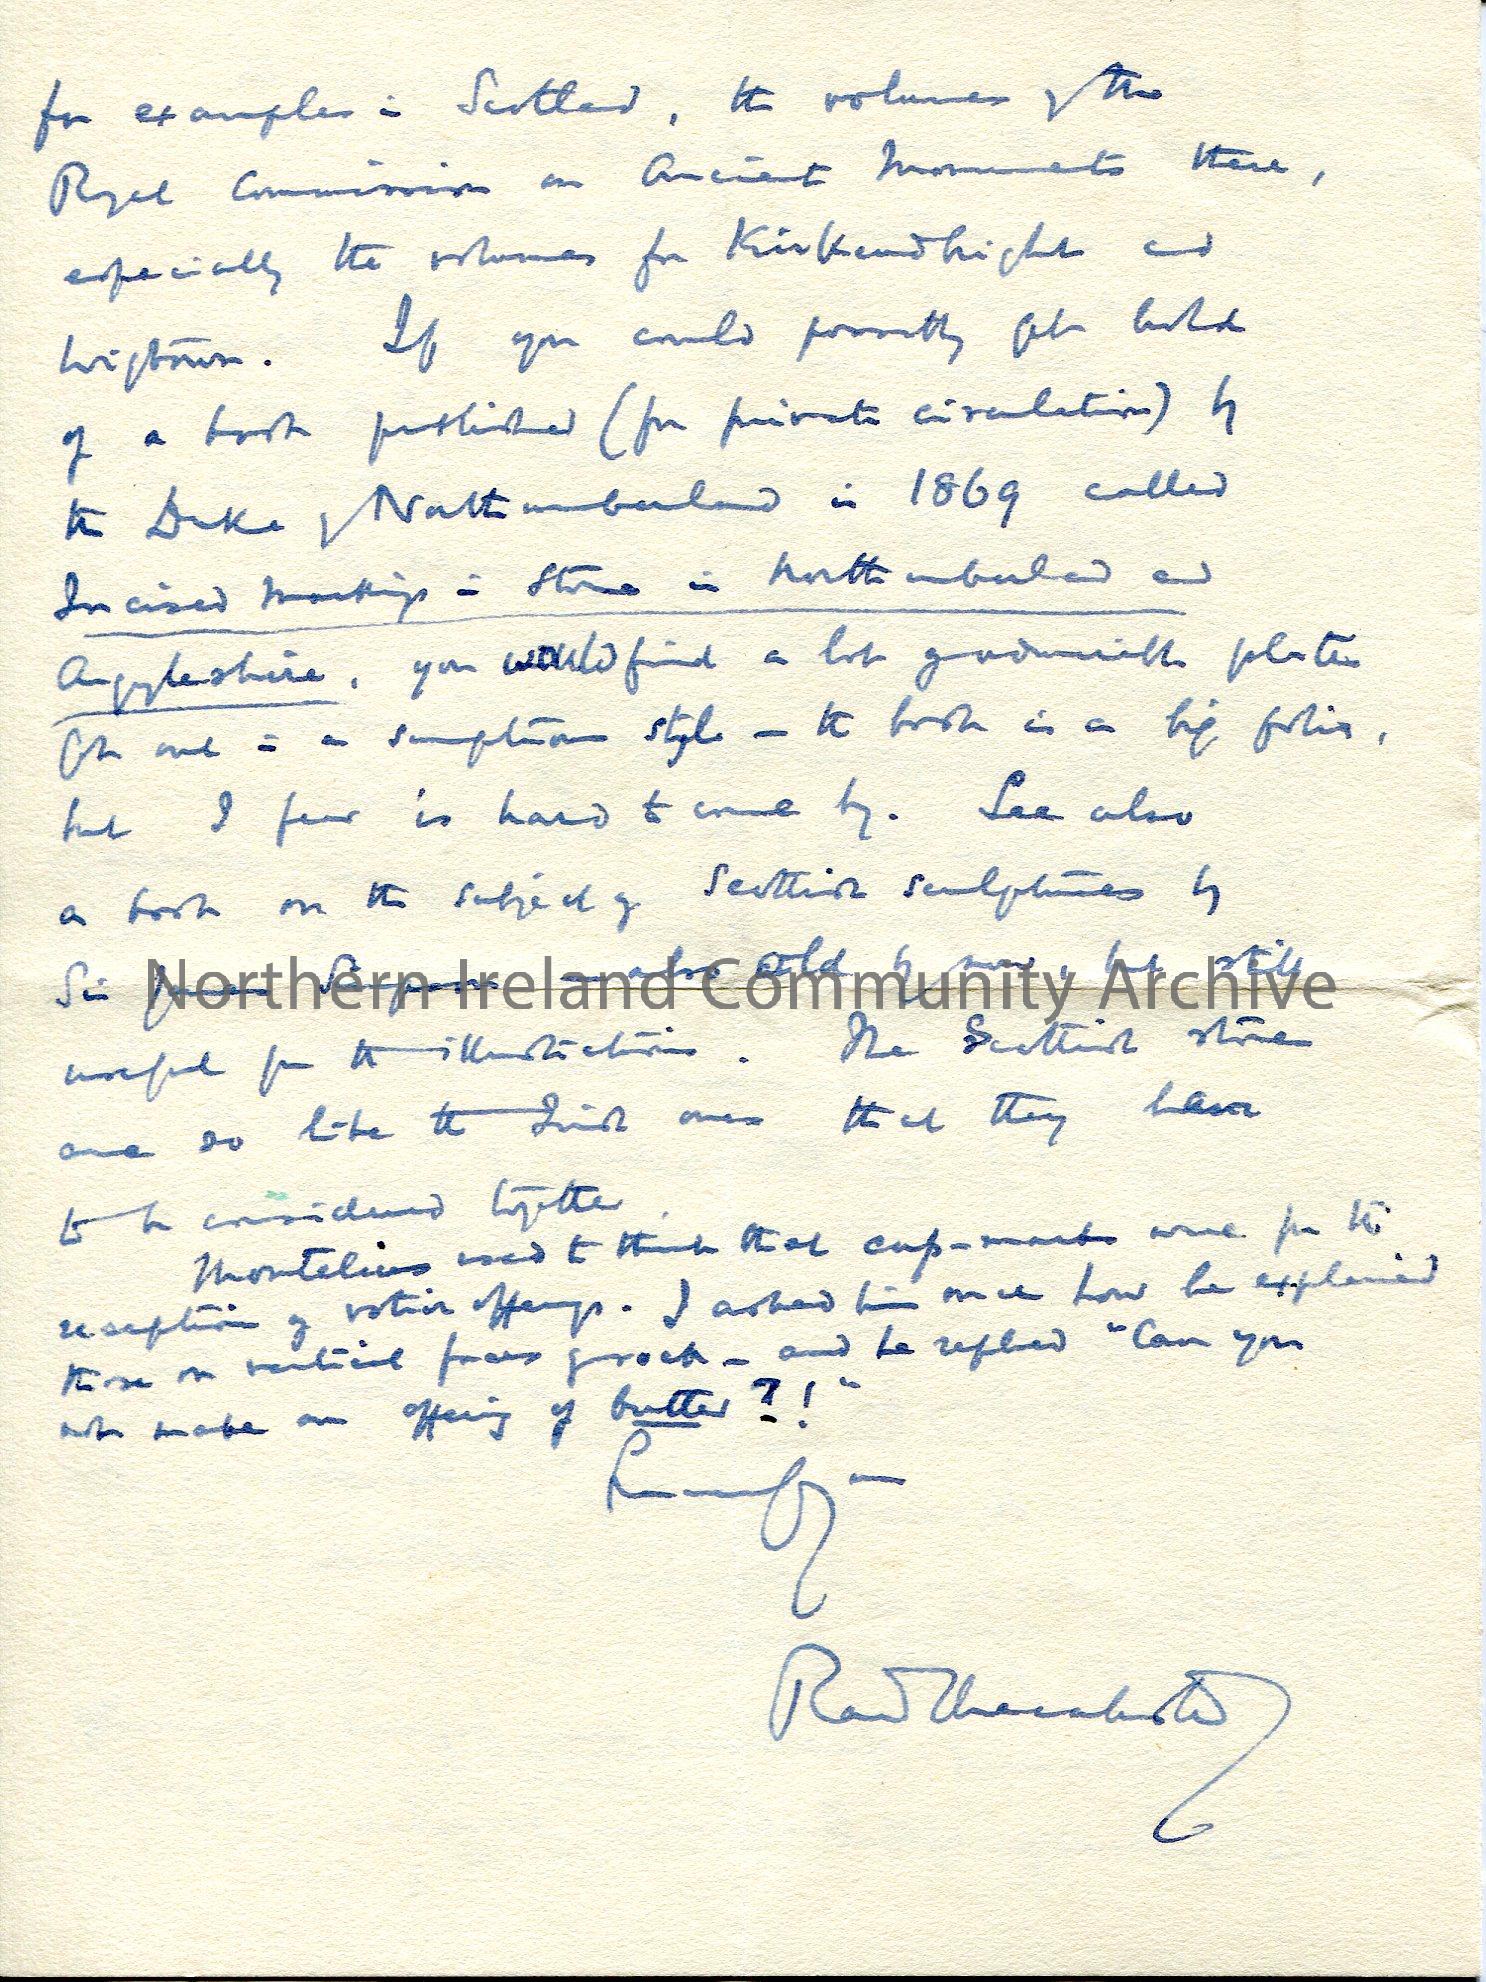 for examples in Scotland, the volumes of the
Royal Commission on Ancient Monuments there,
especially the volumes for Kirkcudbright and
Wigtown. If you could possibly get hold
of a book published (for private circulation) by
the Duke of Northumberland in 1869 called
Incised Markings in Stone in Northumberland and
Argyleshire, you would find a lot of admirable plates
Got out in a sumptuous style – the book is a big folio,
but I fear is hard to come by. See also
a book on the subject of Scottish sculptures by
Sir James Simpson – also old by now, but still
Northern Ireland Community Archive
useful for the illustrations. The Scottish stones
are so like the Irish ones that they have
to be considered together.
Montelius used to think that cup-marks were for the
reception of votive offerings. I asked him once how he explained
those on vertical faces of rock – and he replied "Can you
not make an offering of butter?!"
Sincerely yours
RAS Macalister